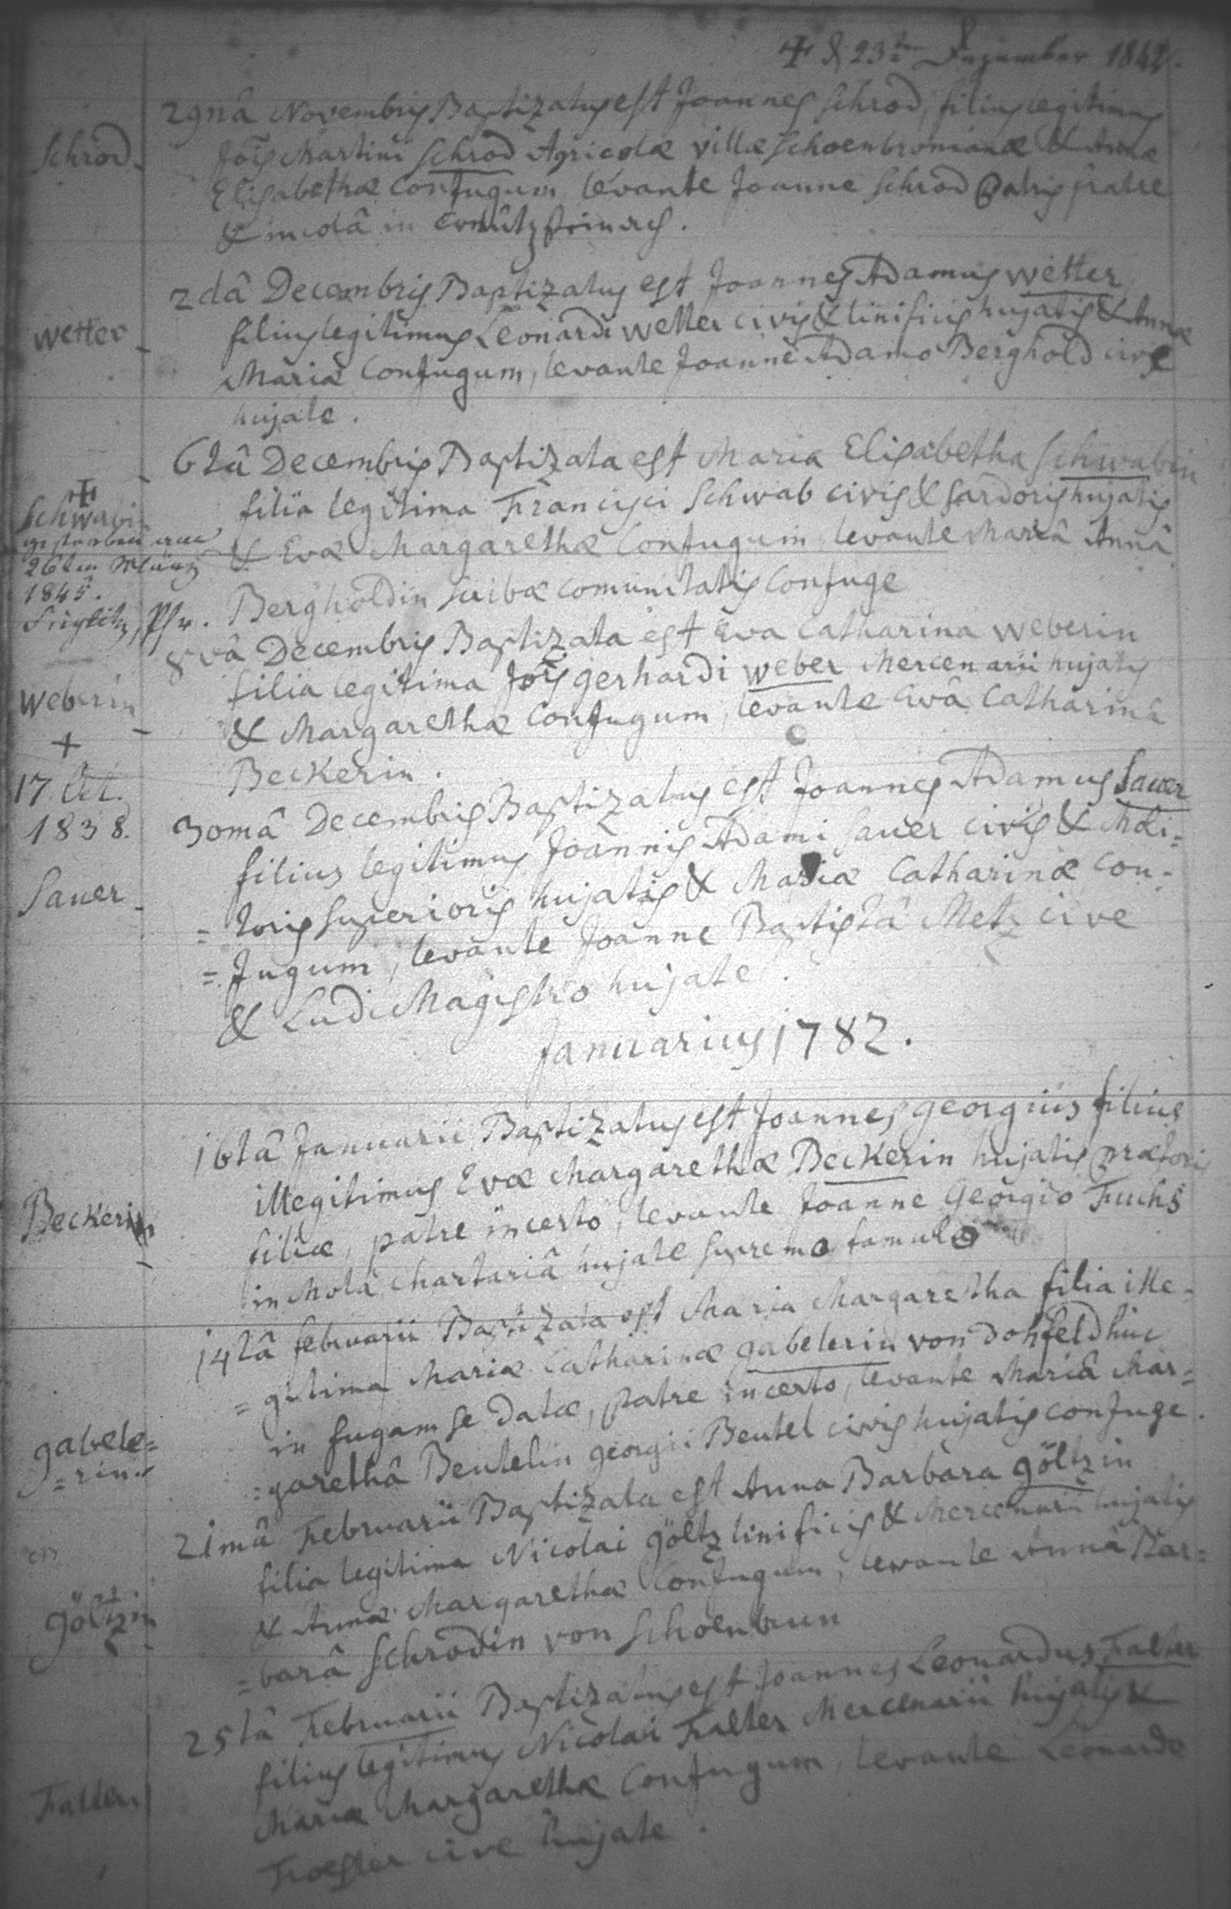 ✝ d 23ten Dezember 1842.
Schrod 29nâ Novembris Baptizatus est Joannes Schrod, filius legitimus
Jois Martini Schrod Agricolæ villæ Schoenbronianæ & Annæ
Elisabethæ Conjugum, levante Joanne Schrod patris fratre
& incolâ in
wetter 2dâ Decembris Baptizatus est Joannes Adamus wetter
filius legitimus Leonardi wetter civis & linificis hujatis & Annæ
Mariæ Conjugum, levante Joanne Adamo Berghold cive
hujate.
6tâ Decembris Baptizata est Maria Elisabetha Schwabin
✝
Schwabin
gestorben am
26ten März
1845.
Pfr.
filia legitima Francisci Schwab civis & sardoris hujatis
& Evæ Margarethæ Conjugum levante Mariâ Annâ
Bergholdin scribæ comunitatis Conjuge
8vâ Decembris Baptizata est Eva Catharina weberin
weberin
+
17. Oct.
1838.
filia legitima Jois gerhardi weber Mercenarii hujatis
& Margarethæ Conjugum, levante Evâ Catharinâ
Beckerin.
Sauer
30mâ Decembris Baptizatus est Joannes Adamus Sauer
filius legitimus Joannis Adami Sauer civis & Moli=
=toris superioris hujatis & Mariæ Catharinæ Con=
=jugum, levante Joanne Baptistâ Metz cive
& Ludi Magistro hujate.
Januarius 1782.
16tâ Januarii Baptizatus est Joannes georgius filius
Beckerin
illegitimus Evæ Margarethæ Beckerin hujatis prætoris
filiæ, patre incerto, levante Joanne Georgio Fuchs
in Molâ Chartariâ hujate supremo famulo
14tâ februarii Baptizata est Maria Margaretha filia ille=
gabele=
=rin.
=gitima Mariæ Catharinæ gabelerin von dohfeld huc
in fugam se datæ, patre incerto, levante Mariâ Mar=
=garethâ Beutelin georgii Beutel civis hujatis conjuge.
göltzin
21mâ Februarii Baptizata est Anna Barbara göltzin
filia legitima Nicolai göltz linificis & Mercenarii hujatis
& Annæ Margarethæ Conjugum, levante Annâ Bar=
=barâ Schrodin von Schoenbrun
25tâ Februarii Baptizatus est Joannes Leonardus Falter
Falter
filius legitimus Nicolai Falter Mercenarii hujatis &
Mariæ Margarethæ Conjugum, levante Leonardo
cive hujate.